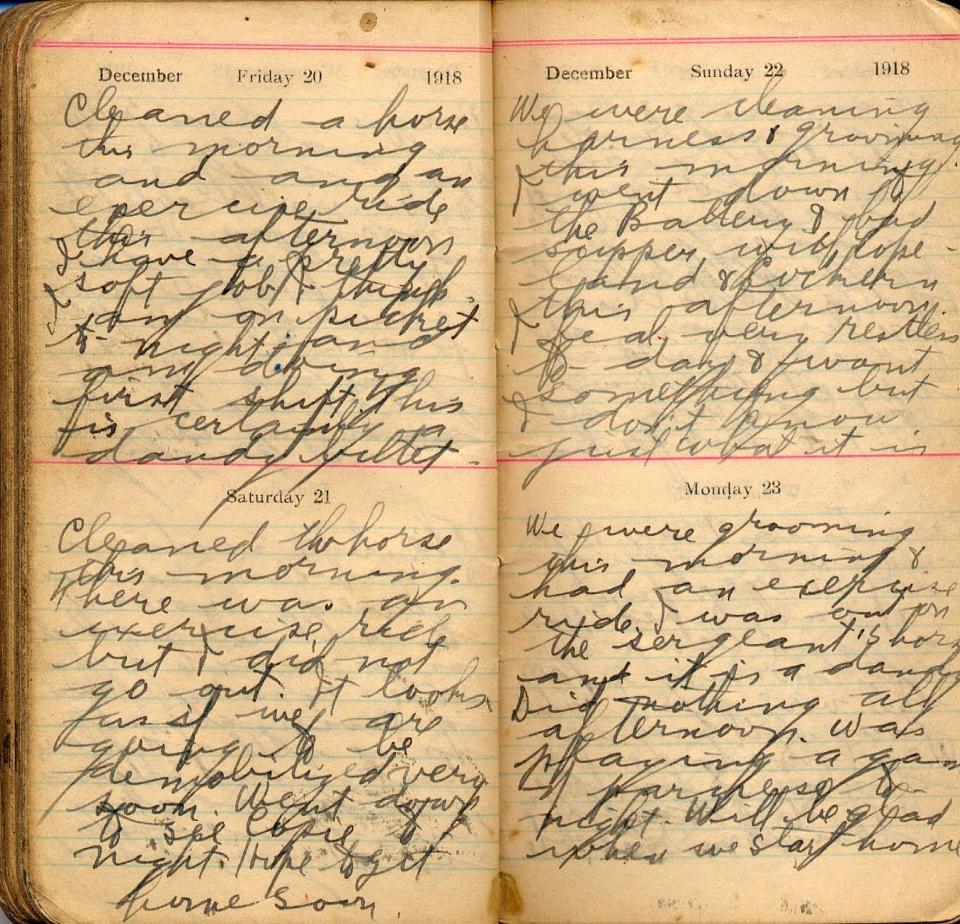 December Friday 20 1918
Cleaned a horse
this morning
and and an
exercise ride
this afternoon
I have a pretty
soft job I think.
I am on picket
to-night and
am doing
first shift this
is certainly a
dandy billet.
Saturday 21
Cleaned horse
this morning.
There was an
exercise ride
but I did not
go out. It looks
as if we are
going to be
demobilized very
soon. Went down
to see to
night. Hope to get
home soon.
December Sunday 22 1918
We were cleaning
harness & grooming
this morning.
I went down to
the Battery & had
supper with
&
this afternoon.
I feel very restless
to-day & I want
something but
I don't know
just what it is
Monday 23
We were grooming
this morning &
had an exercise
ride. I was out on
the sergeant's hors
and it is a dandy
Did nothing all
afternoon. Was
playing a gam
of to-
night. Will be glad
when we start home